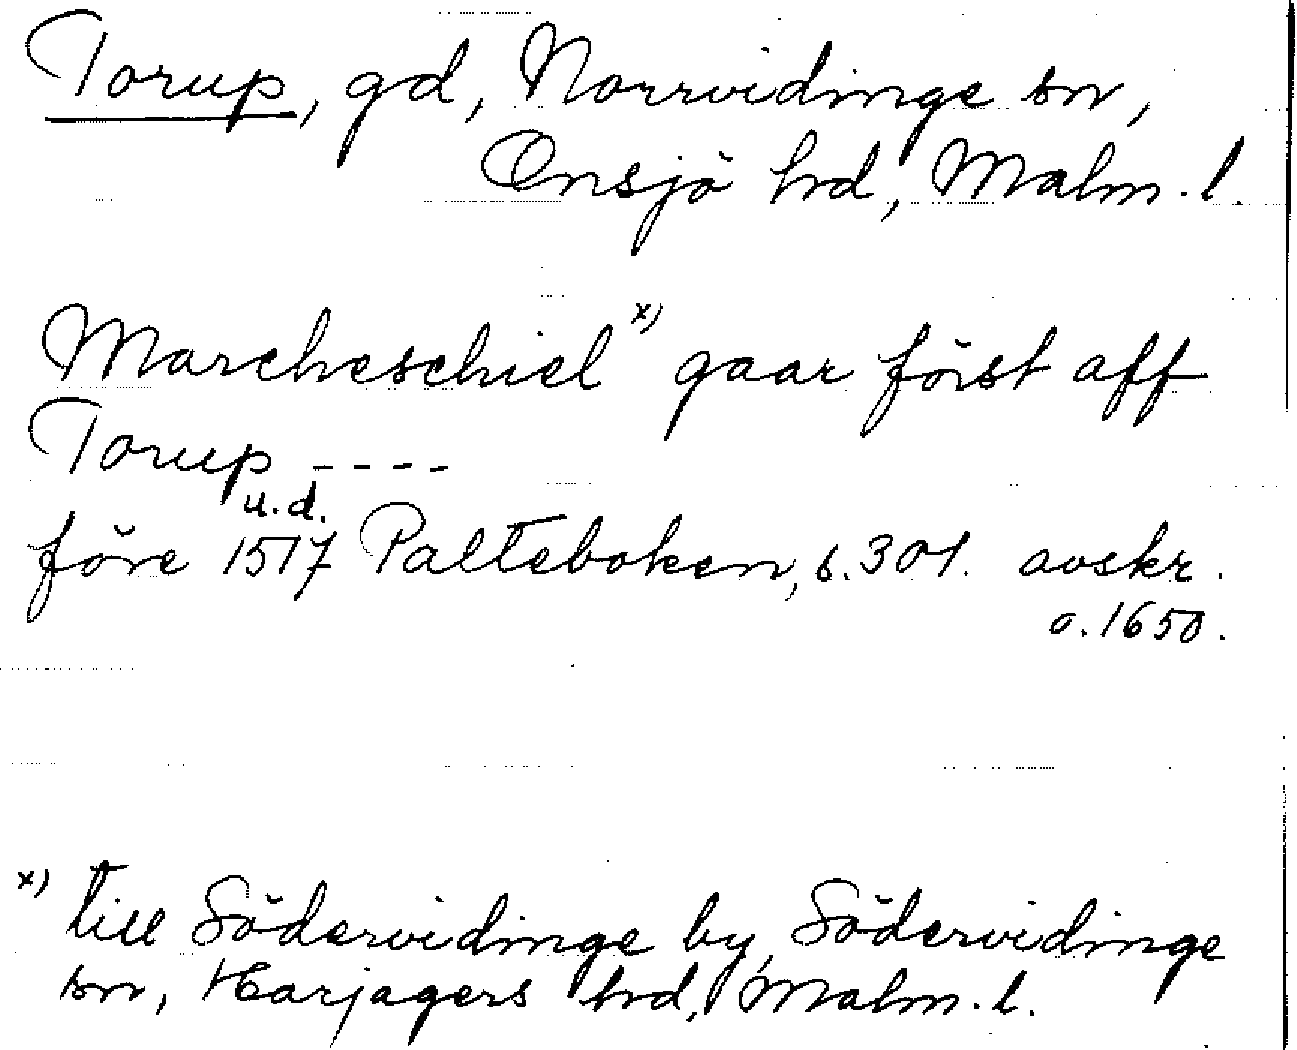 Torup, gd, Norrvidinge sn,
Onsjö hrd, Malm. l.
Marcheschiel x) gaar först aff
Torup ----
u.d.
före 1517 Palteboken, s. 301. avskr.
o. 1650.
x) till Södervidinge by, Södervidinge
sn, Harjagers hrd, Malm. l.